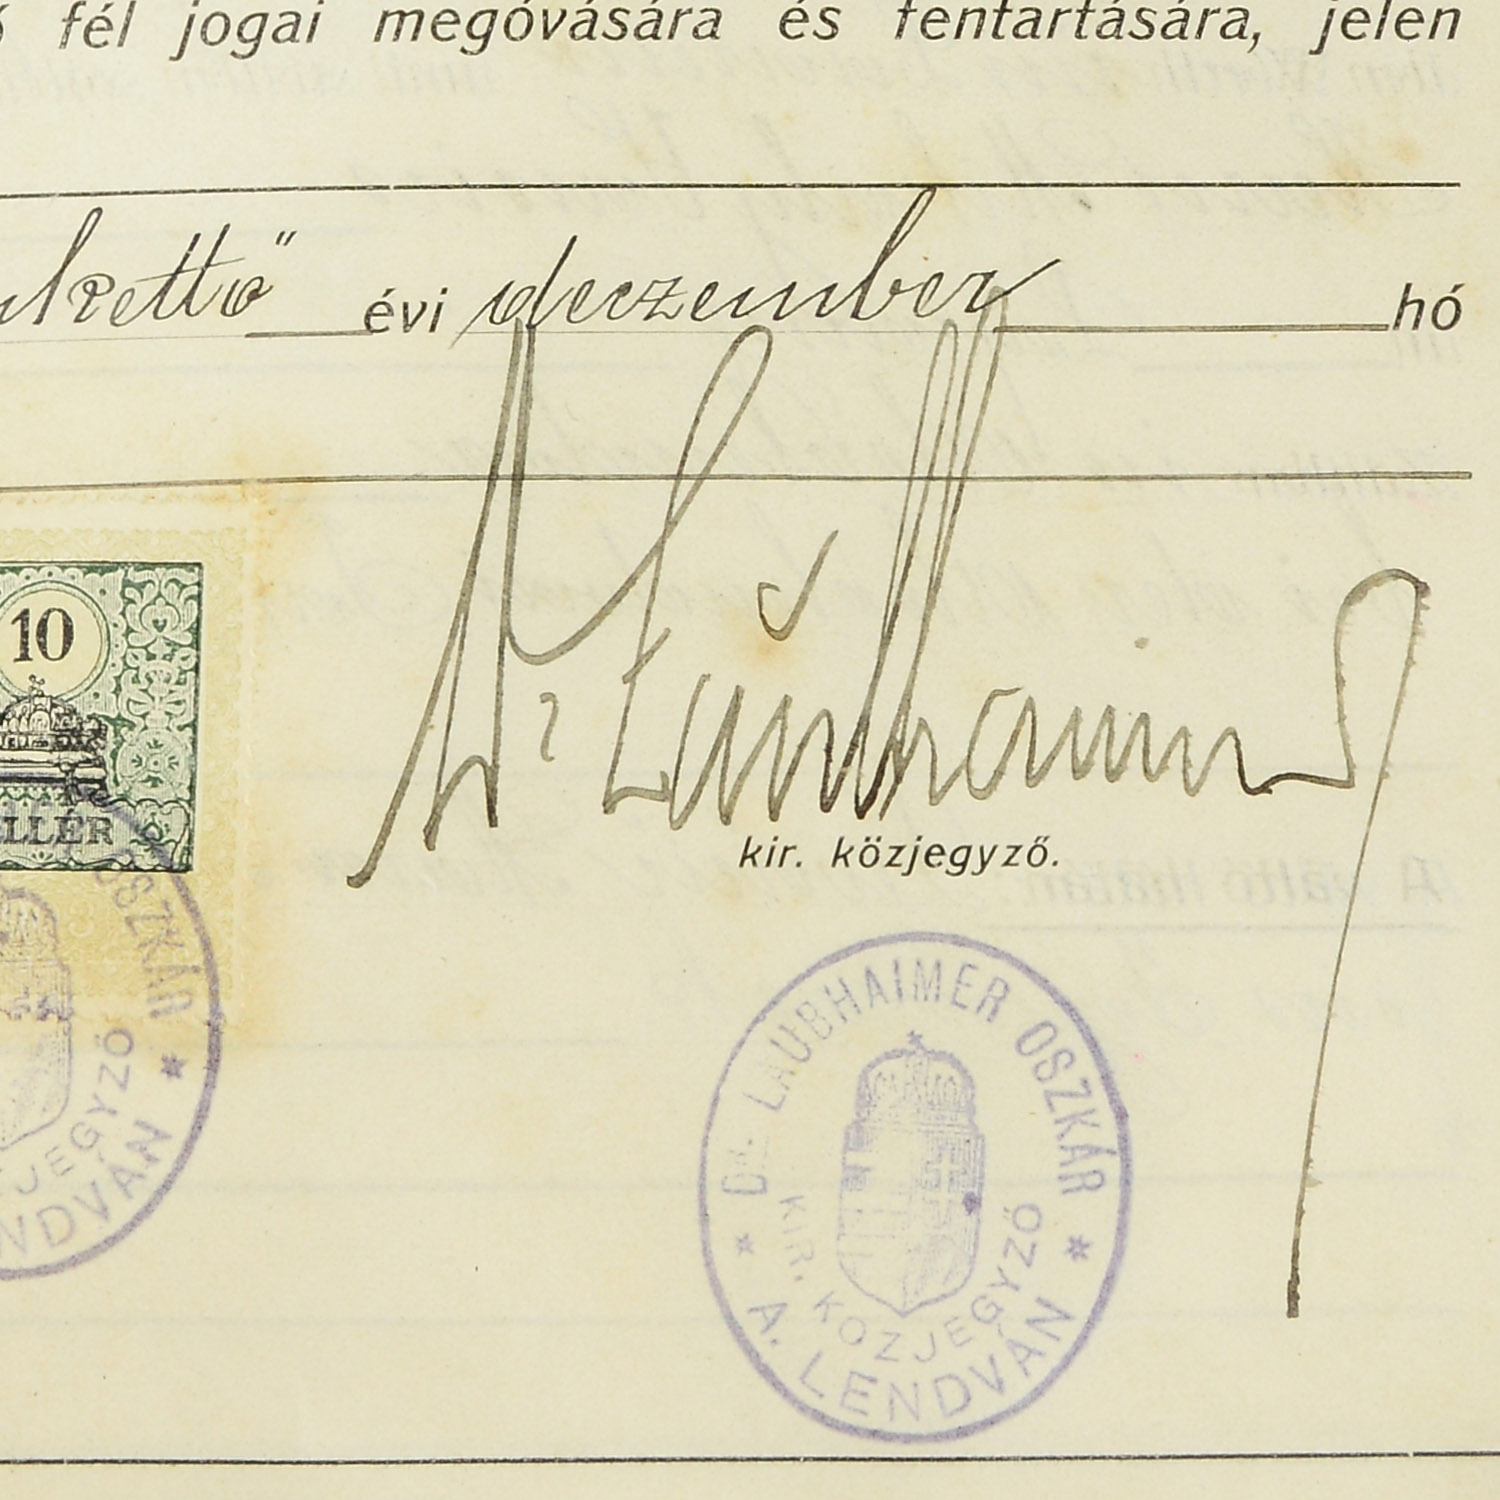 fél jogai megóvására és fentartására, jelen
évi deczember hó
10
LLÉR
Dr Laubhaimer
kir. közjegyző.
OSZKÁR *
JEGYZŐ
NDVÁN
* DR. LAUBHAIMER OSZKÁR *
KIR. KÖZJEGYZŐ
A. LENDVÁN